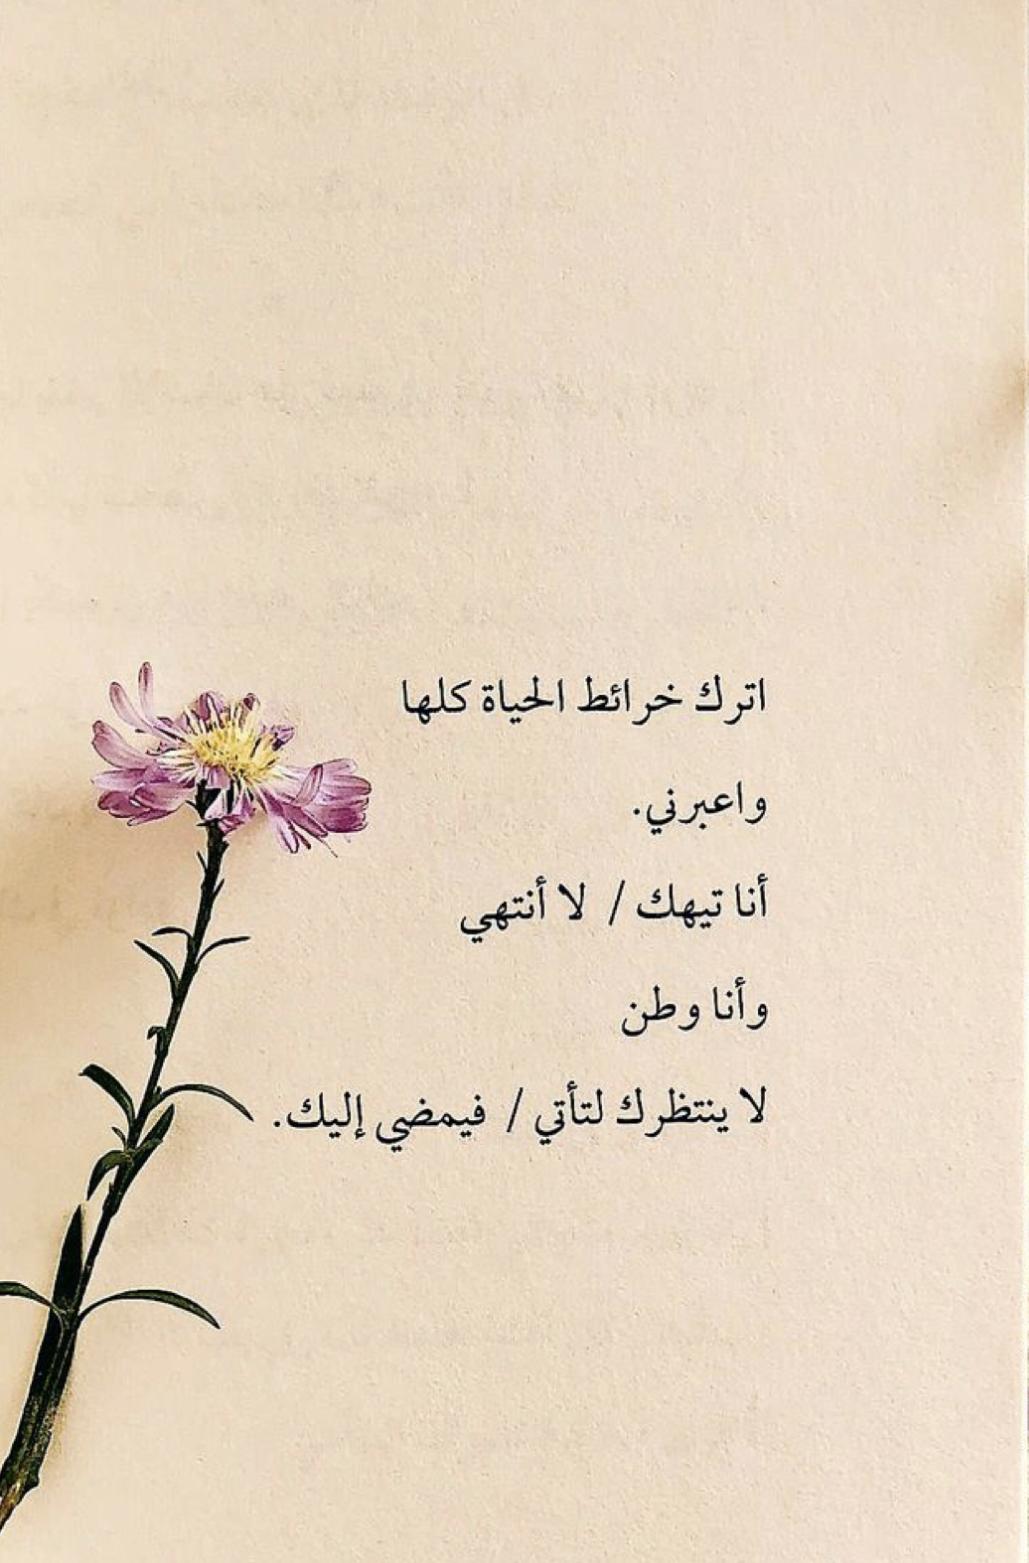 اترك خرائط الحياة كلها
واعبرني.
أنا تيهك / لا أنتهي
وأنا وطن
لا ينتظرك لتأتي / فيمضي إليك.